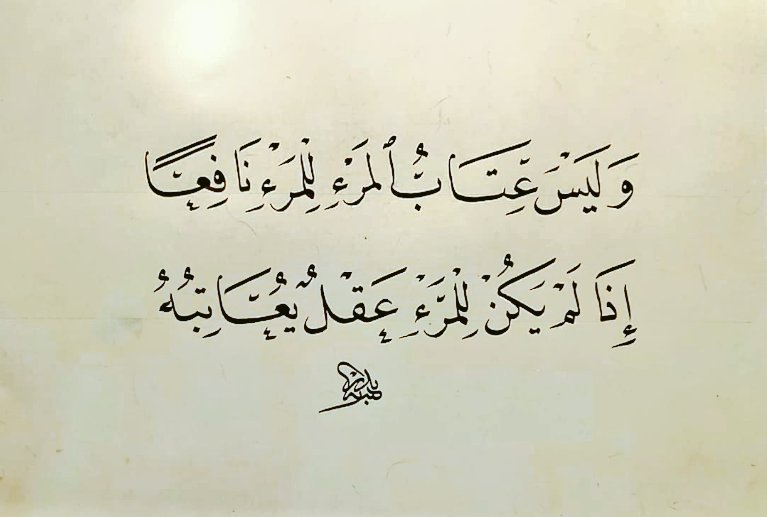 وَلَيْسَ عِتَابُ ٱلمَرْءِ لِلْمَرْءِ نَافِعًا
إِذَا لَمْ يَكُنْ لِلْمَرْءِ عَقْلٌ يُعَاتِبُهُ